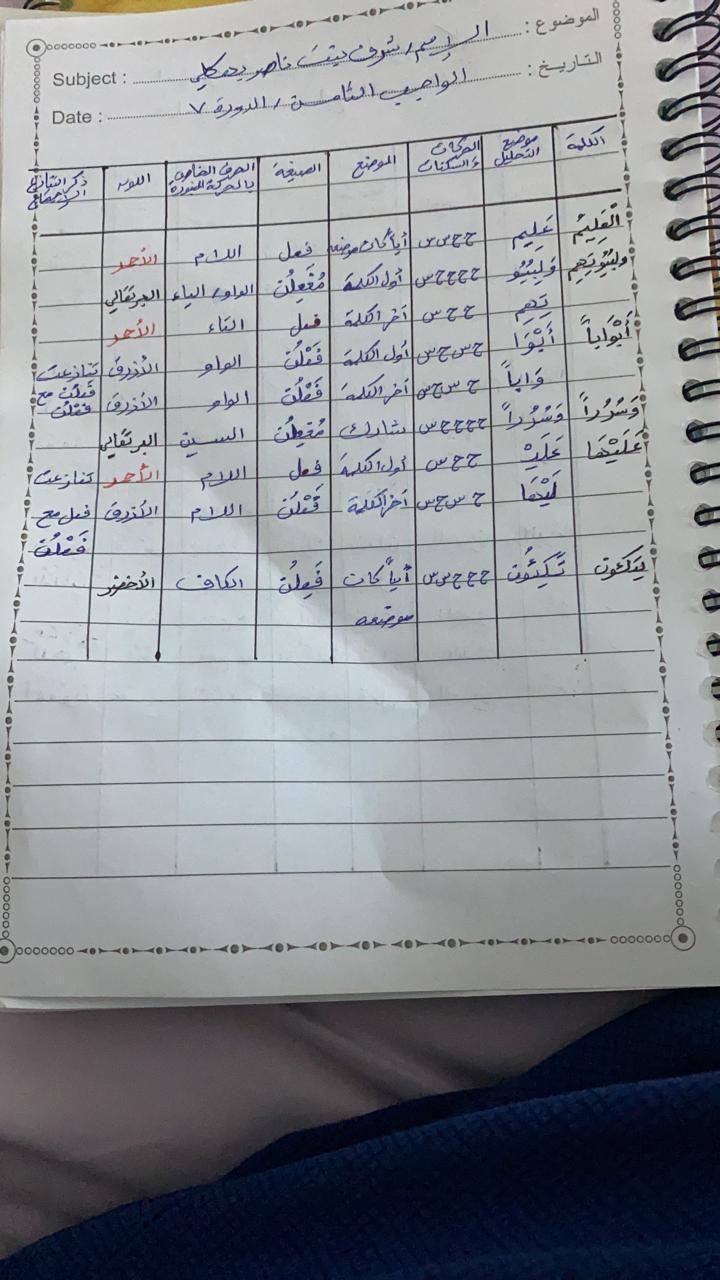 الموضوع : الإسم / شوق بنت ناصر
Subject :
التاريخ : الواجب الثامن / الدورة ٧
Date :
الكلمة موضع التحليل الحركات والسكنات الموضع الصيغة الحرف الخاص بالحركة اللون ذكر التنازع
الْعَلِيمُ عَلِيم ح ح س س أياً كان موضعه فعل اللام الأحمر
وَلِبُيُوتِهِم وَلِبُيُو ح ح ح ح س أول الكلمة مُفْعِلُن الواو / الياء البرتقالي
تِهِم ح ح س آخر الكلمة فعل التاء الأحمر
أَبْوَاباً أَبْوَا ح س ح س أول الكلمة فَعْلُن الواو الأزرق تنازعت
وَاباً ح س ح س آخر الكلمة فَعْلُن الواو الأزرق فَعْلُن مع فَعْلُن
وَسُرُراً وَسُرُراً ح ح ح ح س تشارك السين البرتقالي
عَلَيْهَا عَلَيْ ح ح س أول الكلمة فعل اللام الأحمر تنازعت
لَيْهَا ح س ح س آخر الكلمة فَعْلُن اللام الأزرق فعل مع
فَعْلُن
يَتَّكِئُون تَّكِئُون ح ح ح س س أياً كان فَعِلُن الكاف الأخضر
موضعه